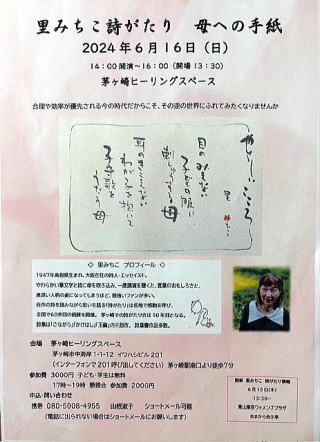 里みちこ詩がたり 母への手紙
2024年6月16日（日）
14：00開演～16：00（開場13：30）
茅ヶ崎ヒーリングスペース
合理や効率が優先される今の時代だからこそ、その逆の世界にふれてみたくなりませんか
やさしいこころ
里 みちこ
目のみえない
子どもの服に
刺しゅうする母
耳のきこえない
わが子を抱いて
子守歌を
うたう母
◇ 里みちこ プロフィール ◇
1947年鳥取県生まれ、大阪在住の詩人・エッセイスト。
やわらかい筆文字と詩に命を吹き込み、一度講演を聴くと、言葉のおもしろさと、
奥深い人柄の虜になってしまうほど、根強いファンが多い。
自作の詩を読みながら思いを語る「詩がたり」は各地で感動を呼び、
会場 茅ヶ崎ヒーリングスペース
茅ヶ崎市中海岸1-1-12 イワハシビル201
（インターフォンで201呼び出してください）茅ヶ崎駅南口より徒歩7分
参加費 3000円 子ども・学生は無料
17時～19時 懇親会 参加費 2000円
申込・問い合わせ
携帯 080-5008-4955 山根淑子 ショートメール可能
（電話に出られない場合はショートメールにお願いします）
関東 里みちこ 詩がたり情報
6月13日（木）
13:30～
青山東京ウィメンズプラザ
あまから会主宰